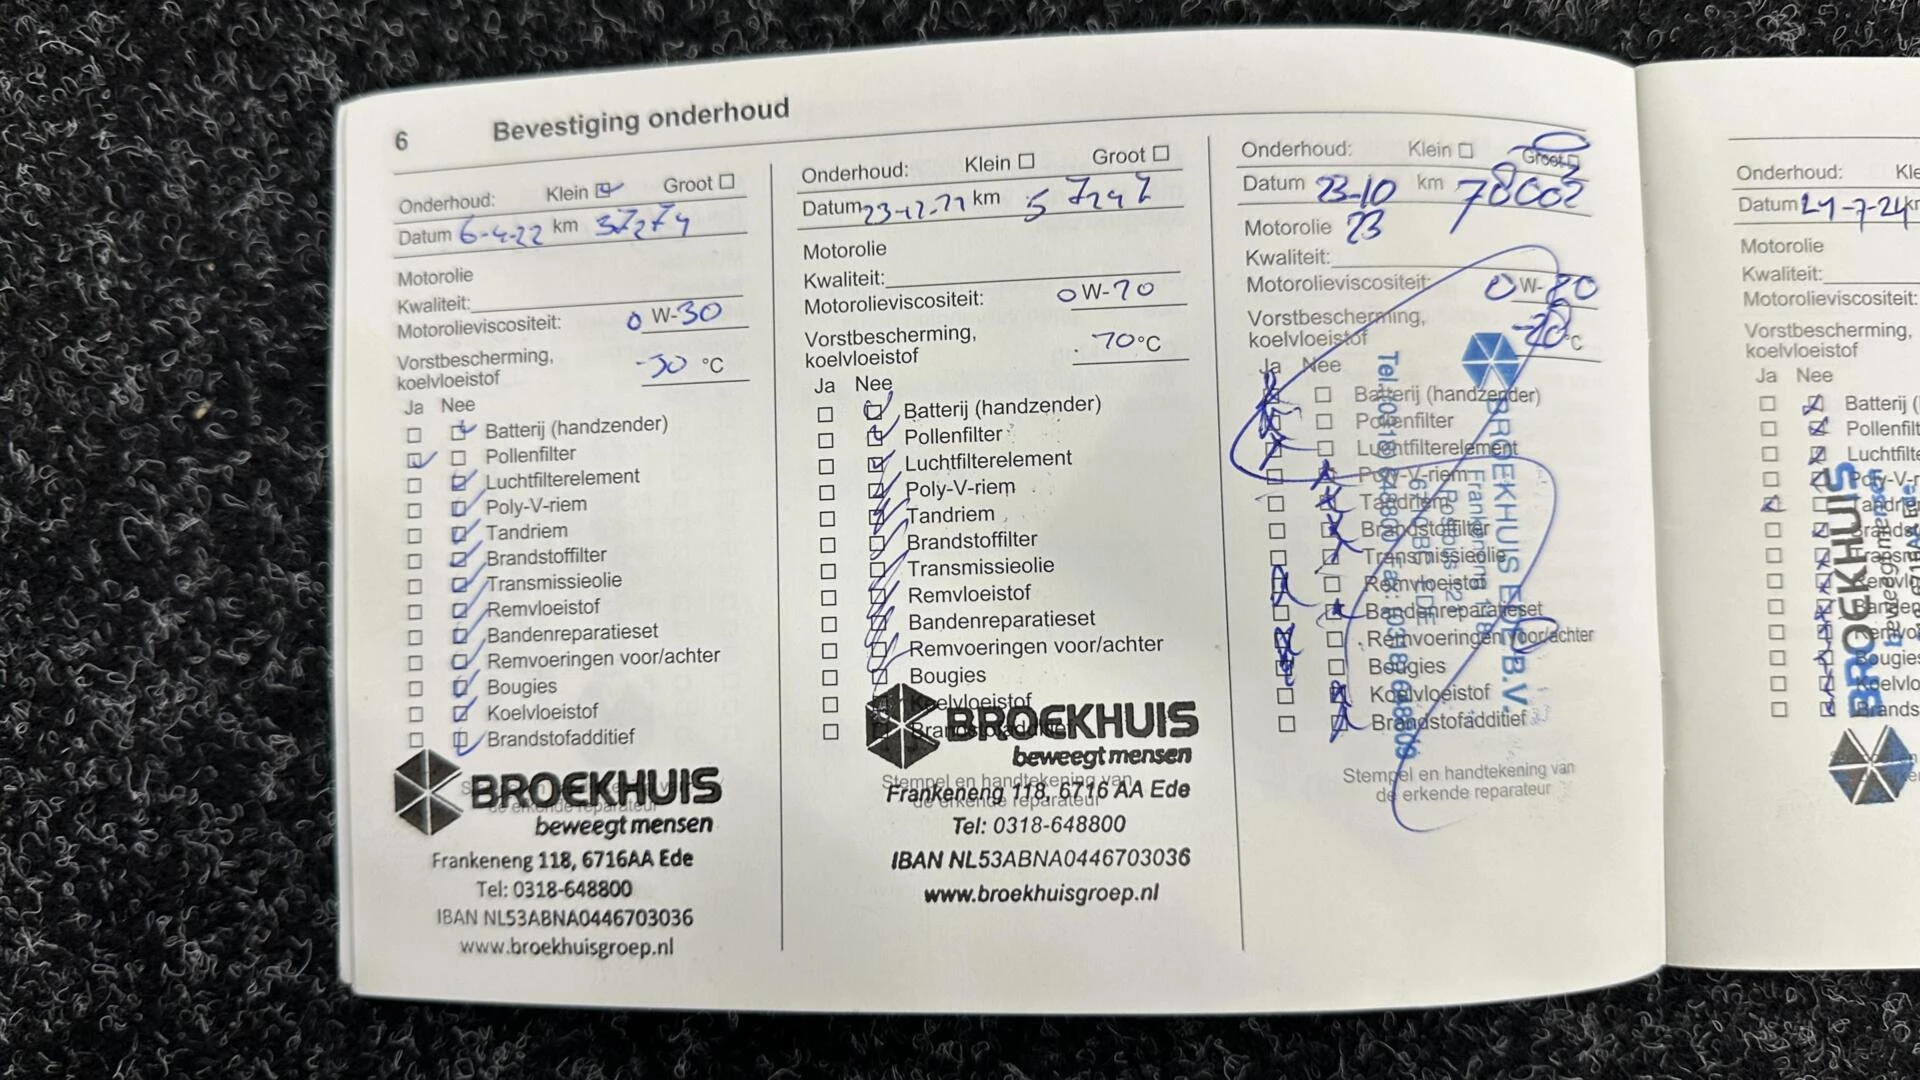 6 Bevestiging onderhoud
Onderhoud: Klein Groot
Datum 6-4-22 km 37274
Motorolie
Kwaliteit:
Motorolieviscositeit: 0 W-30
Vorstbescherming,
koelvloeistof -30 °C
Ja Nee
Batterij (handzender)
Pollenfilter
Luchtfilterelement
Poly-V-riem
Tandriem
Brandstoffilter
Transmissieolie
Remvloeistof
Bandenreparatieset
Remvoeringen voor/achter
Bougies
Koelvloeistof
Brandstofadditief
BROEKHUIS
beweegt mensen
Frankeneng 118, 6716AA Ede
Tel: 0318-648800
IBAN NL53ABNA0446703036
www.broekhuisgroep.nl
Onderhoud: Klein Groot
Datum km
Motorolie
Kwaliteit:
Motorolieviscositeit: 0 W-
Vorstbescherming,
koelvloeistof °C
Ja Nee
Batterij (handzender)
Pollenfilter
Luchtfilterelement
Poly-V-riem
Tandriem
Brandstoffilter
Transmissieolie
Remvloeistof
Bandenreparatieset
Remvoeringen voor/achter
Bougies
Koelvloeistof
Brandstofadditief
BROEKHUIS
beweegt mensen
Stempel en handtekening van
de erkende reparateur
Frankeneng 118, 6716 AA Ede
Tel: 0318-648800
IBAN NL53ABNA0446703036
www.broekhuisgroep.nl
Onderhoud: Klein Groot
Datum 23-10 km 78003
Motorolie 23
Kwaliteit:
Motorolieviscositeit: 0 W-20
Vorstbescherming,
koelvloeistof -20 °C
Ja Nee
Batterij (handzender)
Pollenfilter
Luchtfilterelement
Poly-V-riem
Tandriem
Brandstoffilter
Transmissieolie
Remvloeistof
Bandenreparatieset
Remvoeringen voor/achter
Bougies
Koelvloeistof
Brandstofadditief
BROEKHUIS EDE B.V.
Frankeneng 118
Stempel en handtekening van
de erkende reparateur
Onderhoud: Kle
Datum 24-7-24 k
Motorolie
Kwaliteit:
Motorolieviscositeit:
Vorstbescherming,
koelvloeistof
Ja Nee
Batterij (
Pollenfilt
Luchtfilte
Poly-V-r
BROEKHUIS